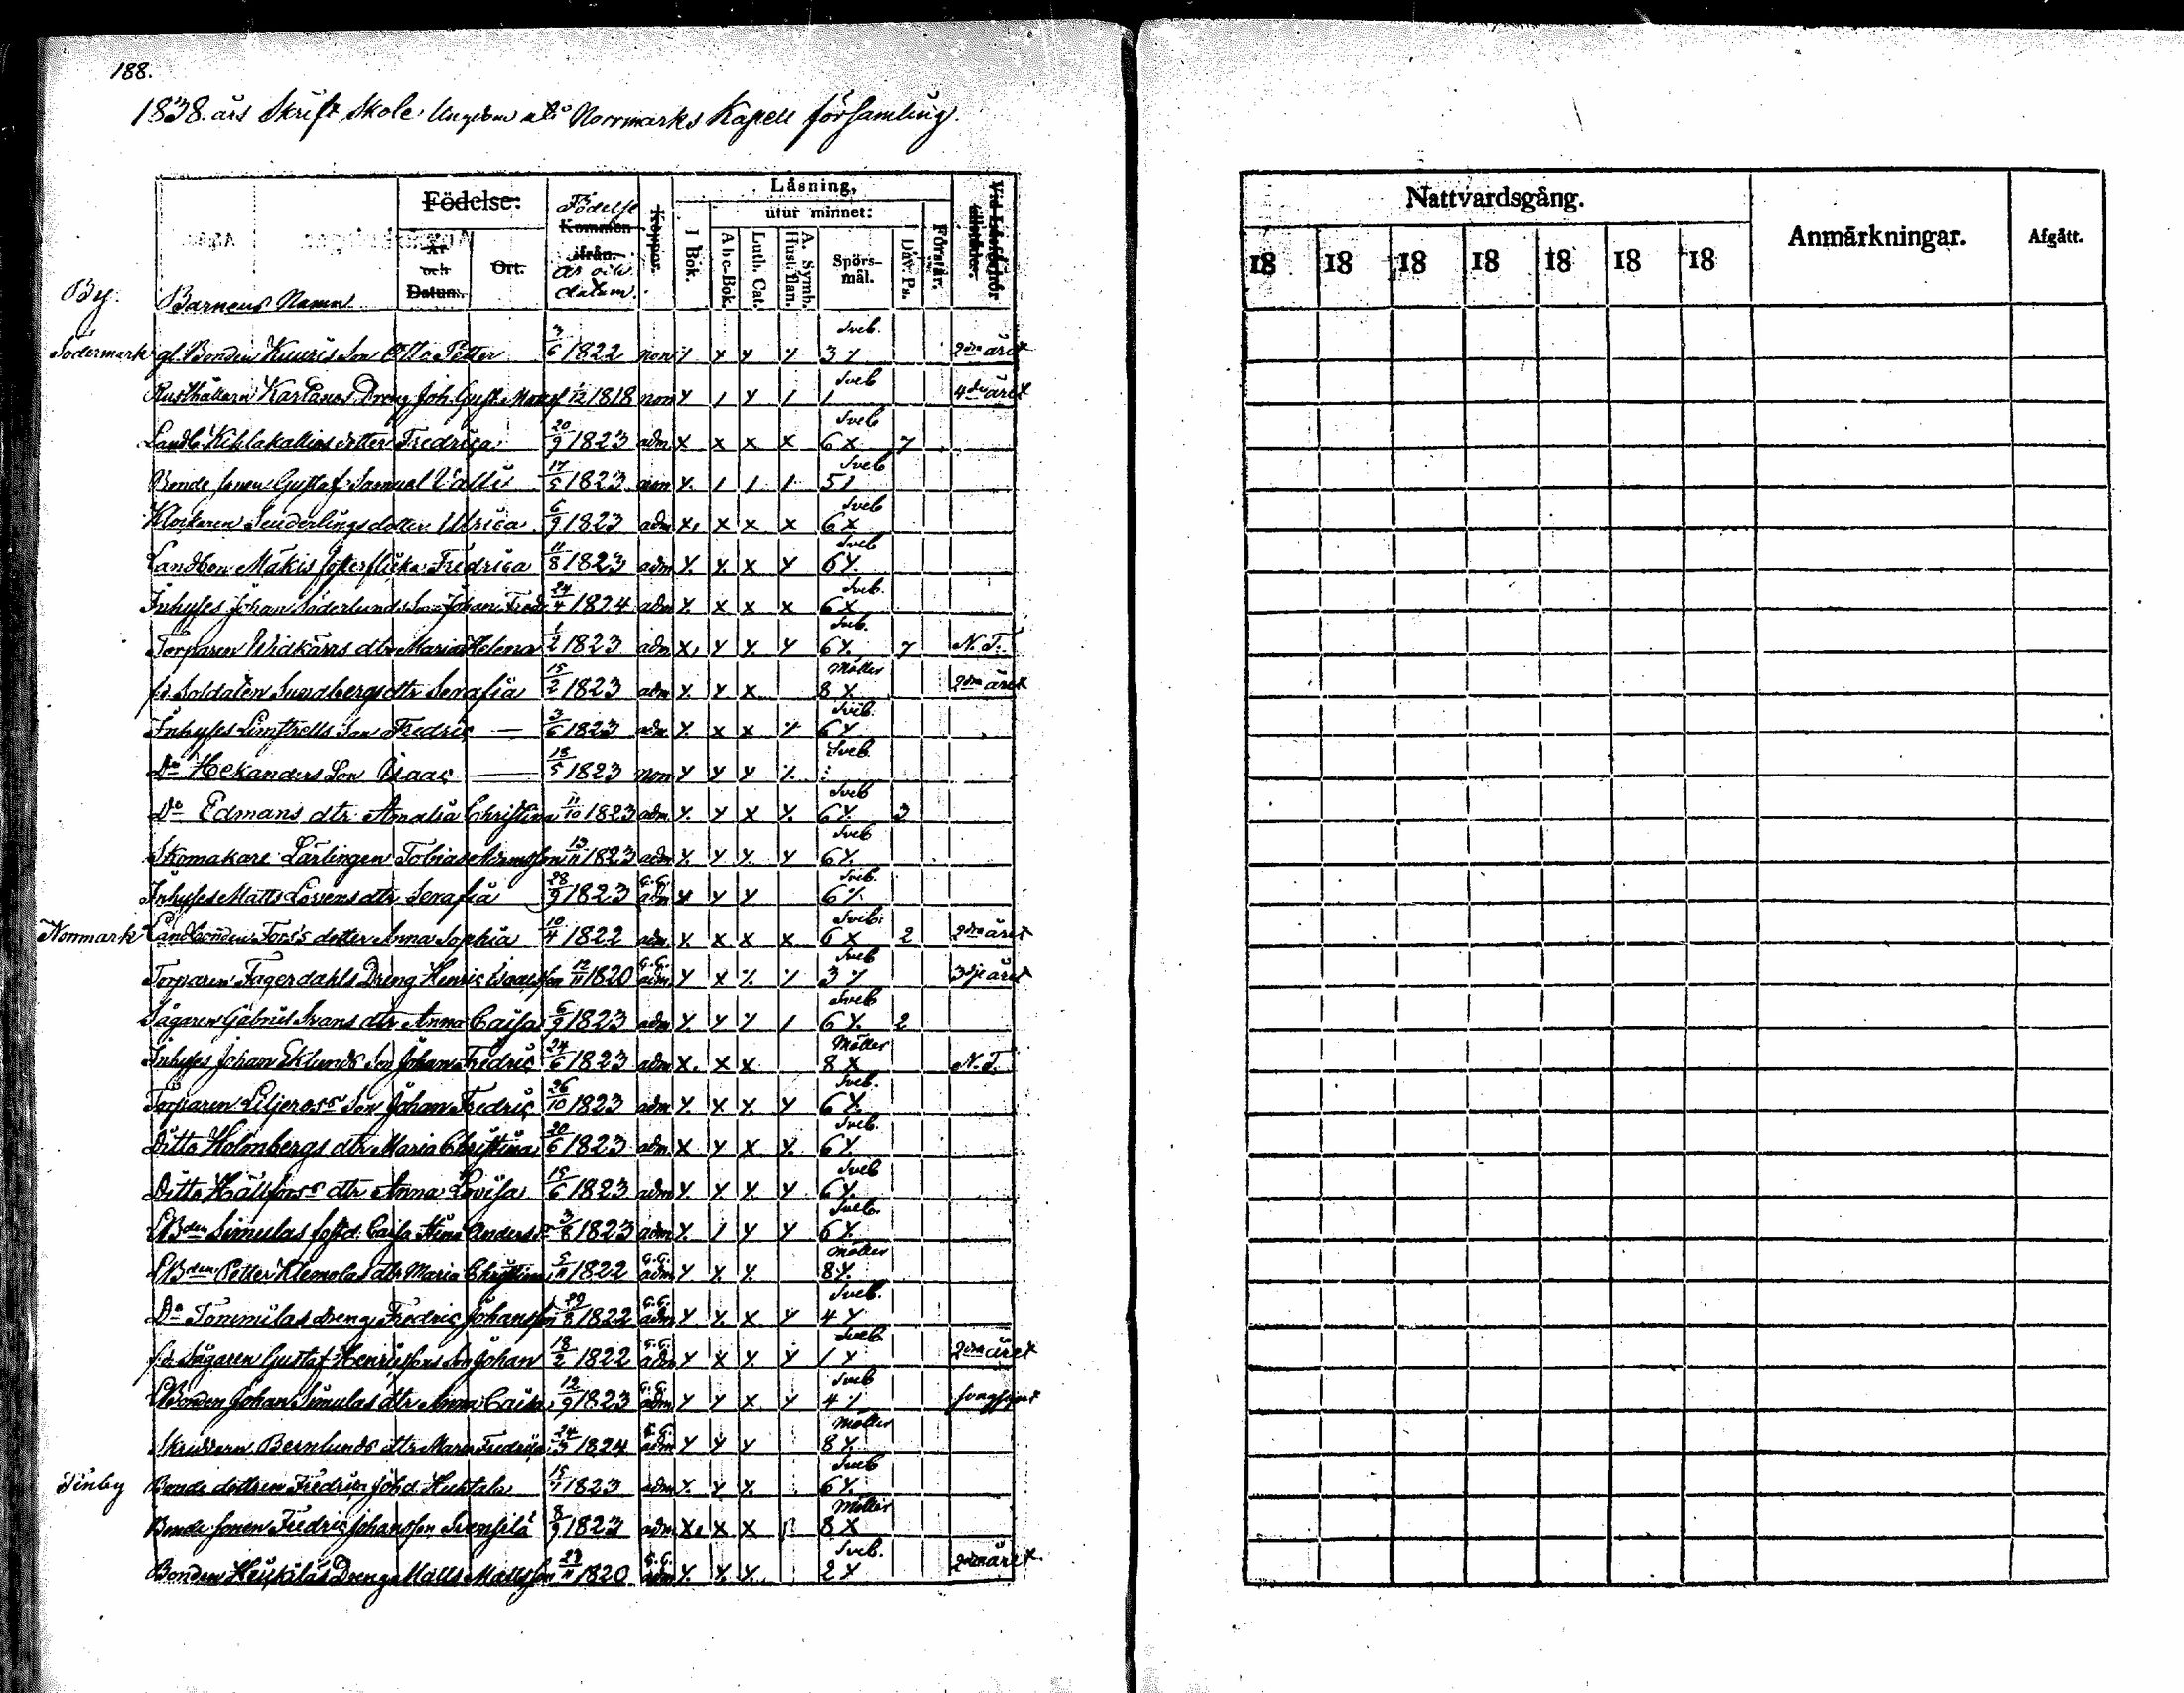 188.
1838. års Skrift Skole Ungdom uti Norrmarks Kapell församling.
Födelse: Födelse Kommen ifrån. År och datum. Koppor. Läsning, Vid Läsförhör
År och Datum. Ort. I Bok. utur minnet: Förstår.
A b c-Bok. Luth. Cat. A. Symb. Hust. tlan. Spörsmål. Dav. Ps.
By. Barnens Namn
Södermark gl. Bonden Kuuris Son Otto Petter 3/6 1822 non 3 Sveb. 2dra året
Rusthållarn Karlanes Dreng Joh. Gust. 1/12 1818 non Sveb 4de året
Landb. dotter Fredrica 20/9 1823 adm x x x x Sveb 6 x 7
Bonde sonen Gustaf Samuel Välli 17/5 1823 Sveb 5
Klockaren dotter Ulrica 6/9 1823 adm x x x x Sveb 6 x
Landbon Mäkis fosterflicka Fredrica 11/8 1823 adm Sveb 6
Inhyses Johan Söderlunds Son Johan Fredr. 24/4 1824 adm x x x Sveb. 6 x
Torparen Widkärrs dtr Maria Helena 1/2 1823 adm Sveb. 6 7 N. T.
fd. Soldaten Sundbergs dtr Serafia 15/2 1823 adm Möller 8 x 2dra året
Inhyses Son Fredric — 3/6 1823 adm Sveb. 6
Do Hekanders Son Isaac — 18/5 1823 non Sveb.
Do Edmans dtr Amalia Christina 11/10 1823 adm Sveb 6 3
Skomakare Lärlingen Tobias 13/11 1823 adm Sveb 6
Inhyses Matts dtr Serafia 28/9 1823 G.G. adm Sveb. 6
Norrmark Landbonden Fors's dotter Anna Sophia 10/4 1822 adm x x x Sveb. 6 x 2 2dra året
Torparen Fagerdahls Dreng Henric Isacsson 12/11 1820 G.G. adm Sveb 3 3dje året
Sågaren Gabriel Svans dtr Anna Caisa 6/9 1823 adm Sveb 6 2
Inhyses Johan Eklunds Son Johan Fredric 24/6 1823 adm x x x Möller 8 x N. T.
Torparen Liljeross Son Johan Fredric 26/10 1823 adm Sveb. 6
Ditto Holmbergs dtr Maria Christina 20/6 1823 adm Sveb. 6
Ditto Hällforss dtr Anna Lovisa 15/6 1823 adm Sveb 6
LBden Simulas fostd. Caisa Stina Andersdr 3/8 1823 adm Sveb. 6
LBden Petter Klemolas dtr Maria Christina 5/11 1822 G.G. adm Möller 8
Do Tommilas dreng Fredric Johansson 29/8 1822 G.G. adm Sveb. 4
fd. Sågaren Gustaf Henricssons Son Johan 18/2 1822 G.G. adm Sveb 1 2dra året
LBonden Johan Simulas dtr Anna Caisa 12/9 1823 G.G. adm Sveb 4 svagsynt
Bernlunds dtr Maria Fredrica 24/3 1824 G.G. adm Möller 8
Finby Bonde dottren Fredrica Johd. Huktala 15/7 1823 adm Sveb 6
Bonde sonen Fredric Johansson Svensilä 8/9 1823 adm x x x Möller 8 x
Bonden Heikiläs Dreng Matts Mattsson 29/11 1820 G.G. adm Sveb. 2 2dra året
Nattvardsgång. Anmärkningar. Afgått.
18 18 18 18 18 18 18